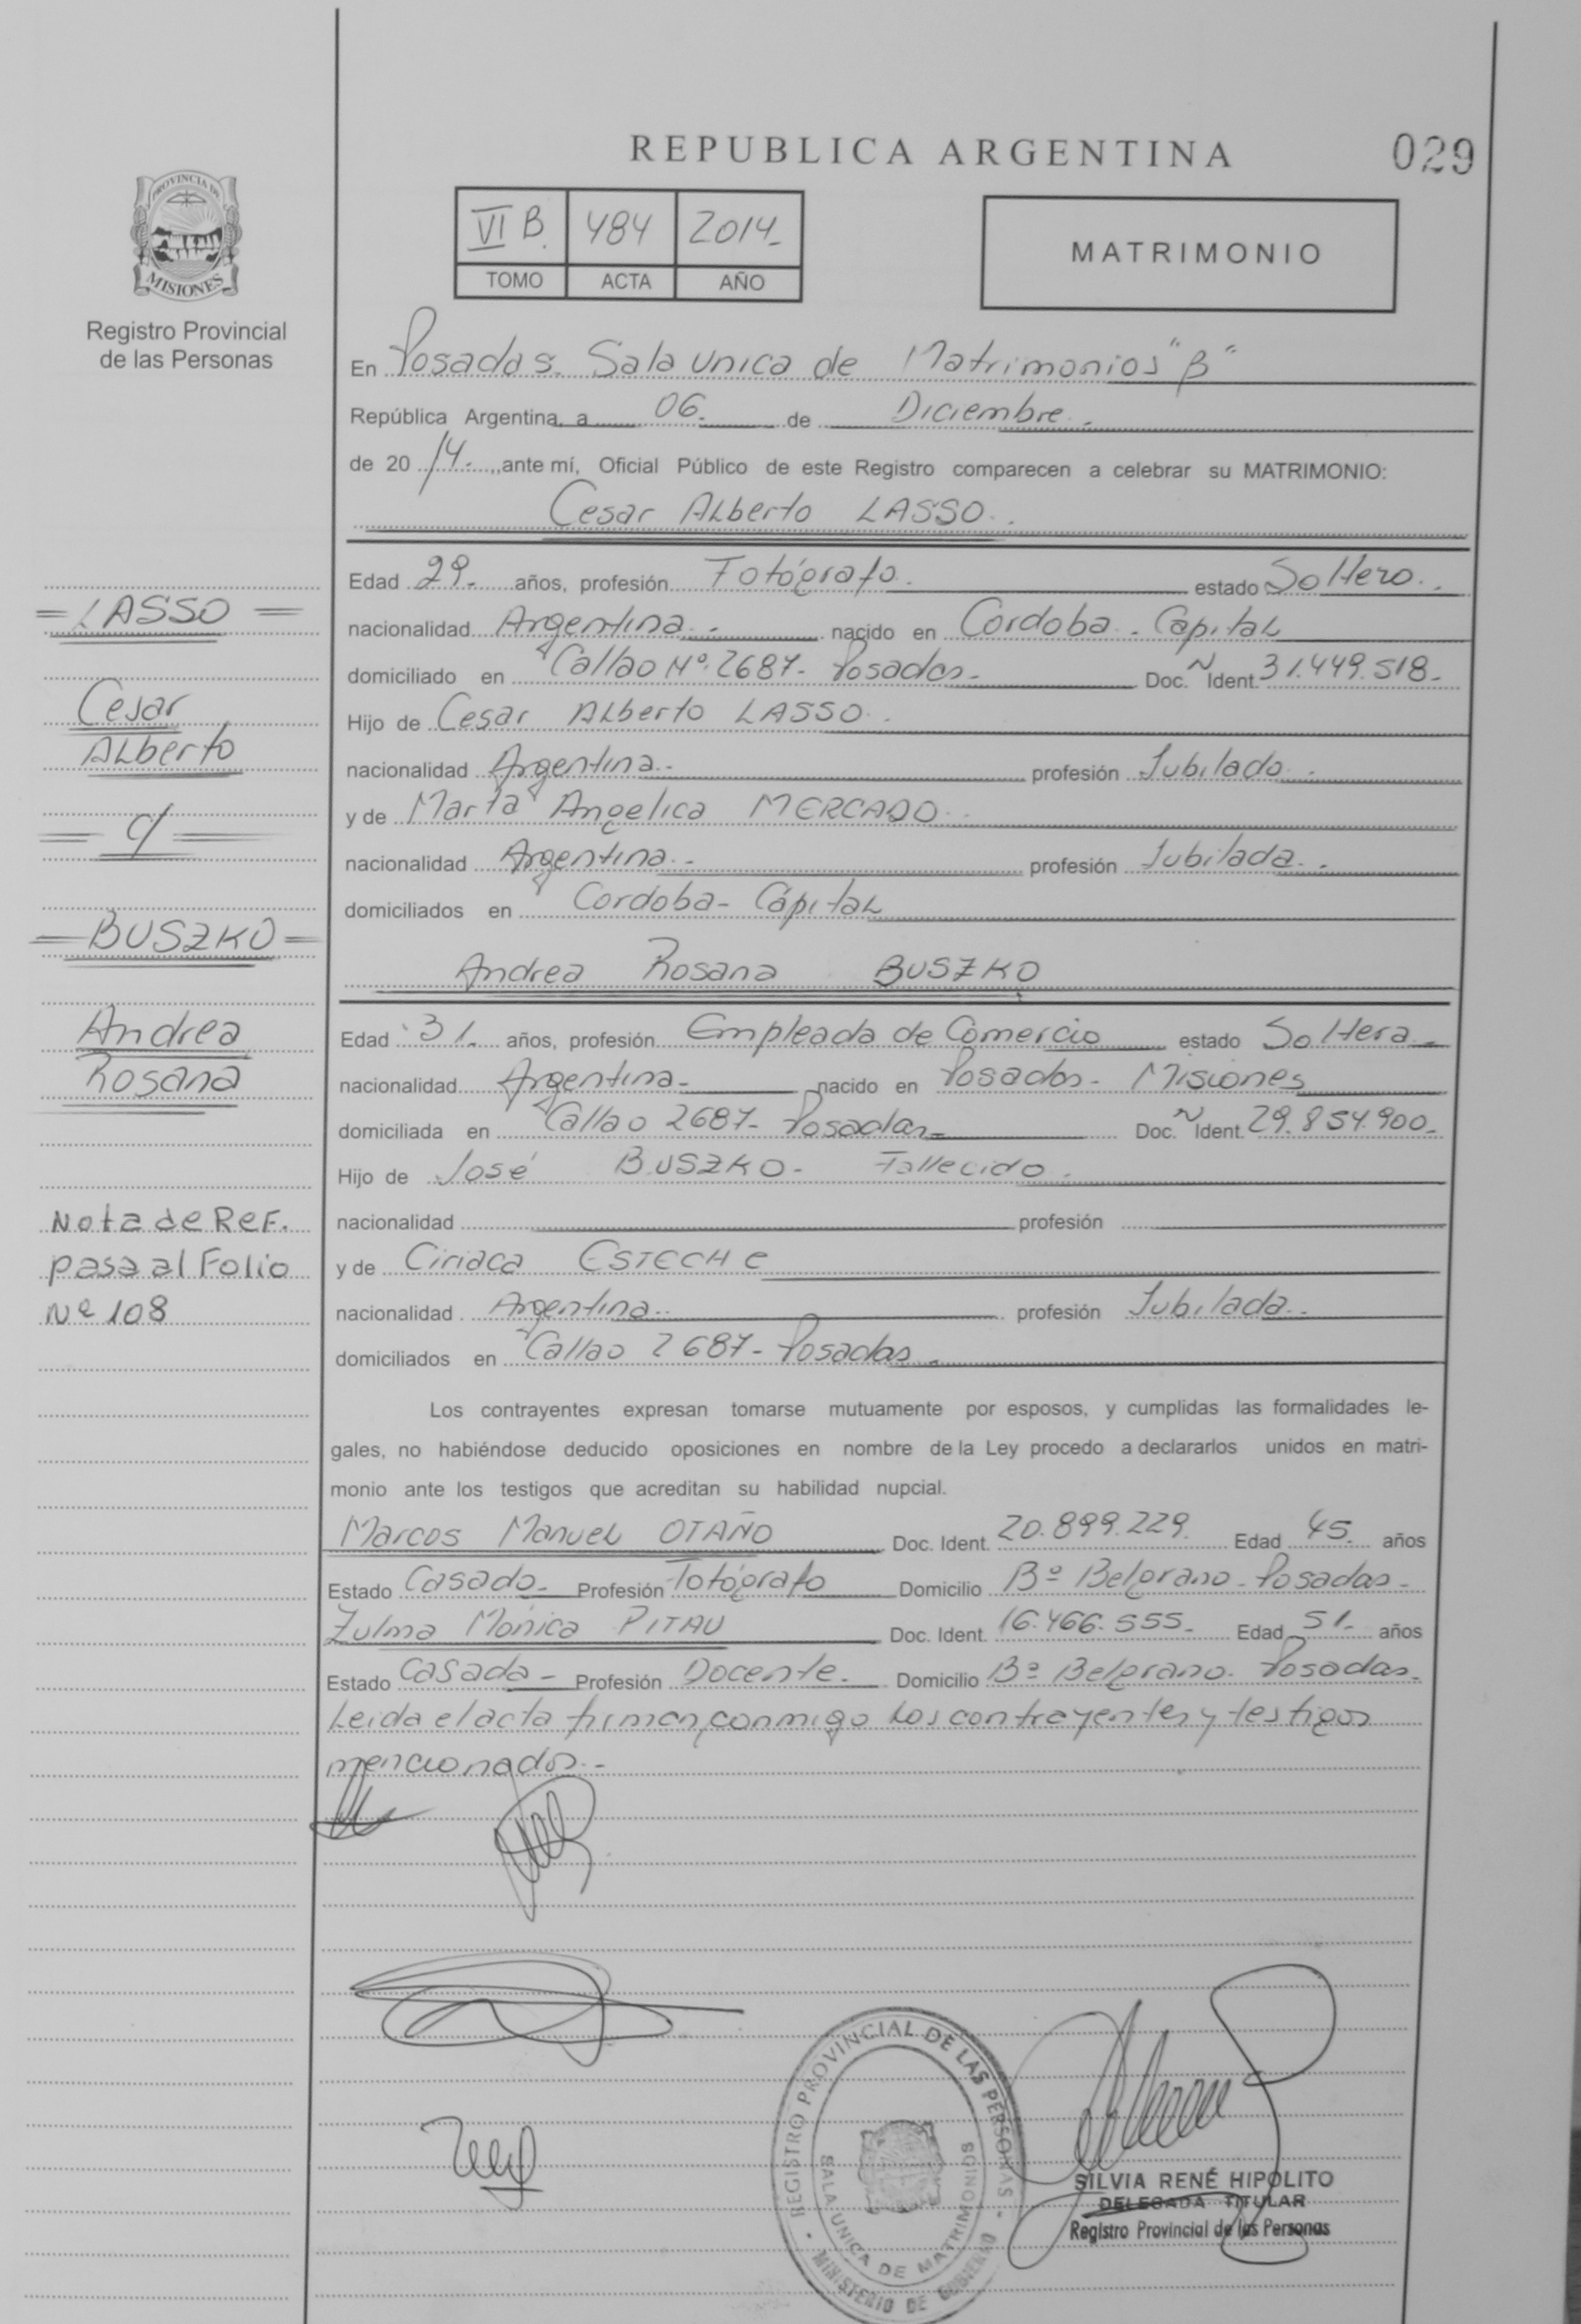 REPUBLICA ARGENTINA
029
PROVINCIA DE
MISIONES
Registro Provincial
de las Personas
VI B. 484 2014-
TOMO ACTA AÑO
MATRIMONIO
En Posadas. Sala unica de Matrimonios "B"
República Argentina, a 06. de Diciembre.
de 20 14. ,ante mí, Oficial Público de este Registro comparecen a celebrar su MATRIMONIO:
Cesar Alberto LASSO.
Edad 29. años, profesión Fotógrafo. estado Soltero.
nacionalidad Argentina. nacido en Cordoba. Capital
domiciliado en Callao Nº 2687- Posadas- Doc. N Ident. 31.449.518-
Hijo de Cesar Alberto LASSO.
nacionalidad Argentina.- profesión Jubilado.
y de Marta Angelica MERCADO.
nacionalidad Argentina.- profesión Jubilada.
domiciliados en Cordoba- Cápital
Andrea Rosana BUSZKO
Edad 31. años, profesión Empleada de Comercio estado Soltera-
nacionalidad Argentina- nacido en Posadas- Misiones
domiciliada en Callao 2687- Posadas- Doc. N Ident. 29.854.900-
Hijo de José BUSZKO- Fallecido.
nacionalidad profesión
y de Ciriaca ESTECHE
nacionalidad Argentina. profesión Jubilada.
domiciliados en Callao 2687- Posadas.
=LASSO=
Cesar
Alberto
= c/ =
=BUSZKO=
Andrea
Rosana
Nota de Ref.
pasa al Folio
Nº 108
Los contrayentes expresan tomarse mutuamente por esposos, y cumplidas las formalidades le-
gales, no habiéndose deducido oposiciones en nombre de la Ley procedo a declararlos unidos en matri-
monio ante los testigos que acreditan su habilidad nupcial.
Marcos Manuel OTAÑO Doc. Ident. 20.899.229. Edad 45. años
Estado Casado- Profesión Fotógrafo Domicilio Bº Belgrano- Posadas-
Zulma Mónica PITAU Doc. Ident. 16.466.555- Edad 51- años
Estado Casada- Profesión Docente- Domicilio Bº Belgrano- Posadas-
Leida el acta firman conmigo los contrayentes y testigos
mencionados.-
REGISTRO PROVINCIAL DE LAS PERSONAS
SALA UNICA DE MATRIMONIOS
MINISTERIO DE GOBIERNO
SILVIA RENÉ HIPOLITO
DELEGADA TITULAR
Registro Provincial de las Personas